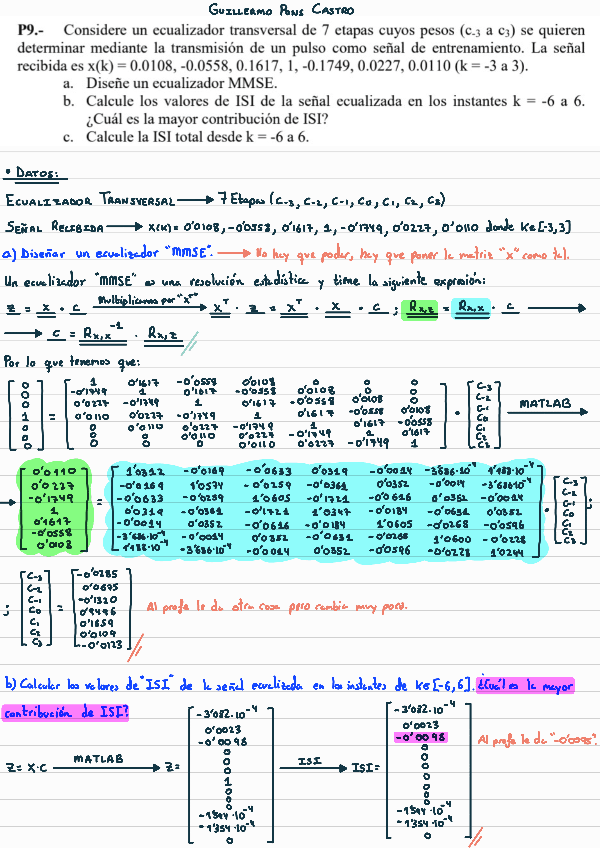 GUILLERMO PONS CASTRO
P9.- Considere un ecualizador transversal de 7 etapas cuyos pesos (c-3 a c3) se quieren
determinar mediante la transmisión de un pulso como señal de entrenamiento. La señal
recibida es x(k) = 0.0108, -0.0558, 0.1617, 1, -0.1749, 0.0227, 0.0110 (k = -3 a 3).
a. Diseñe un ecualizador MMSE.
b. Calcule los valores de ISI de la señal ecualizada en los instantes k = -6 a 6.
¿Cuál es la mayor contribución de ISI?
c. Calcule la ISI total desde k = -6 a 6.
• DATOS:
ECUALIZADOR TRANSVERSAL → 7 Etapas (C-3, C-2, C-1, C0, C1, C2, C3)
SEÑAL RECIBIDA → X(K) = 0'0108, -0'0558, 0'1617, 1, -0'1749, 0'0227, 0'0110 donde K∈[-3,3]
a) Diseñar un ecualizador "MMSE". → No hay que poder, hay que poner la matriz "x" como tal.
Un ecualizador "MMSE" es una resolución estadística y tiene la siguiente expresión:
z = x · c Multiplicamos por "x^T" → x^T · z = x^T · x · c ; Rx,z = Rx,x · c →
→ c = Rx,x^-1 · Rx,z
Por lo que tenemos que:
[0 0 0 1 0 0 0] =
1 0'1617 -0'0558 0'0108 0 0 0
-0'1749 1 0'1617 -0'0558 0'0108 0 0
0'0227 -0'1749 1 0'1617 -0'0558 0'0108 0
0'0110 0'0227 -0'1749 1 0'1617 -0'0558 0'0108
0 0'0110 0'0227 -0'1749 1 0'1617 -0'0558
0 0 0'0110 0'0227 -0'1749 1 0'1617
0 0 0 0'0110 0'0227 -0'1749 1
· [C-3 C-2 C-1 C0 C1 C2 C3] MATLAB →
→ [0'0110 0'0227 -0'1749 1 0'1617 -0'0558 0'0108] =
1'0312 -0'0169 -0'0633 0'0319 -0'0014 -3'686·10^-4 1'188·10^-4
-0'0169 1'0574 -0'0259 -0'0361 0'0352 -0'0014 -3'686·10^-4
-0'0633 -0'0259 1'0605 -0'1721 -0'0616 0'0352 -0'0014
0'0319 -0'0361 -0'1721 1'0347 -0'0184 -0'0631 0'0352
-0'0014 0'0352 -0'0616 -0'0184 1'0605 -0'0268 -0'0596
-3'686·10^-4 -0'0014 0'0352 -0'0631 -0'0268 1'0600 -0'0228
1'188·10^-4 -3'686·10^-4 -0'0014 0'0352 -0'0596 -0'0228 1'0244
· [C-3 C-2 C-1 C0 C1 C2 C3] ;
; [C-3 C-2 C-1 C0 C1 C2 C3] = [-0'0285 0'0695 -0'1320 0'9496 0'1659 0'0109 -0'0123] Al profe le da otra cosa pero cambia muy poco.
b) Calcular los valores de "ISI" de la señal ecualizada en los instantes de K∈[-6,6]. ¿Cuál es la mayor
contribución de ISI?
Z = X·C MATLAB → Z = [-3'082·10^-4 0'0023 -0'0098 0 0 0 1 0 0 0 -1'844·10^-4 -1'354·10^-4 0] ISI → ISI = [-3'082·10^-4 0'0023 -0'0098 0 0 0 0 0 0 0 -1'844·10^-4 -1'354·10^-4 0] Al profe le da "-0'0095".